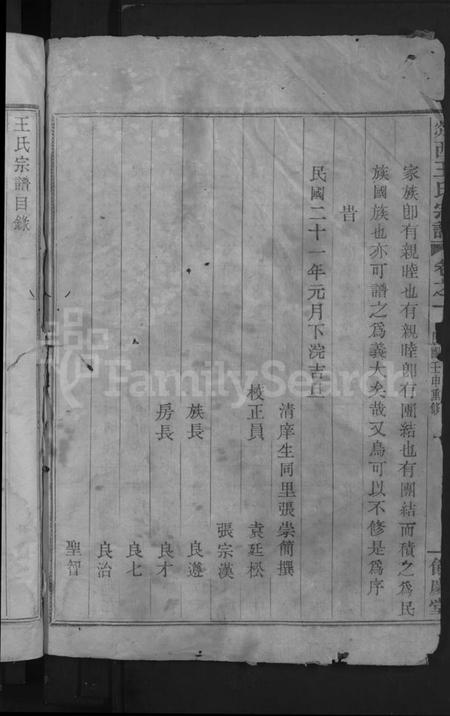 西王氏宗譜 卷之一 民國壬申重修
家族卽有親睦也有親睦卽有團結也有團結而積之爲民
族國族也亦可譜之爲義大矣哉又烏可以不修是爲序
旹
民國二十一年元月下浣吉旦
清庠生同里張崇簡撰
校正員 袁廷松
張宗漢
族長 良遵
房長 良才
良七
良治
聖智
王氏宗譜目錄
FamilySearch